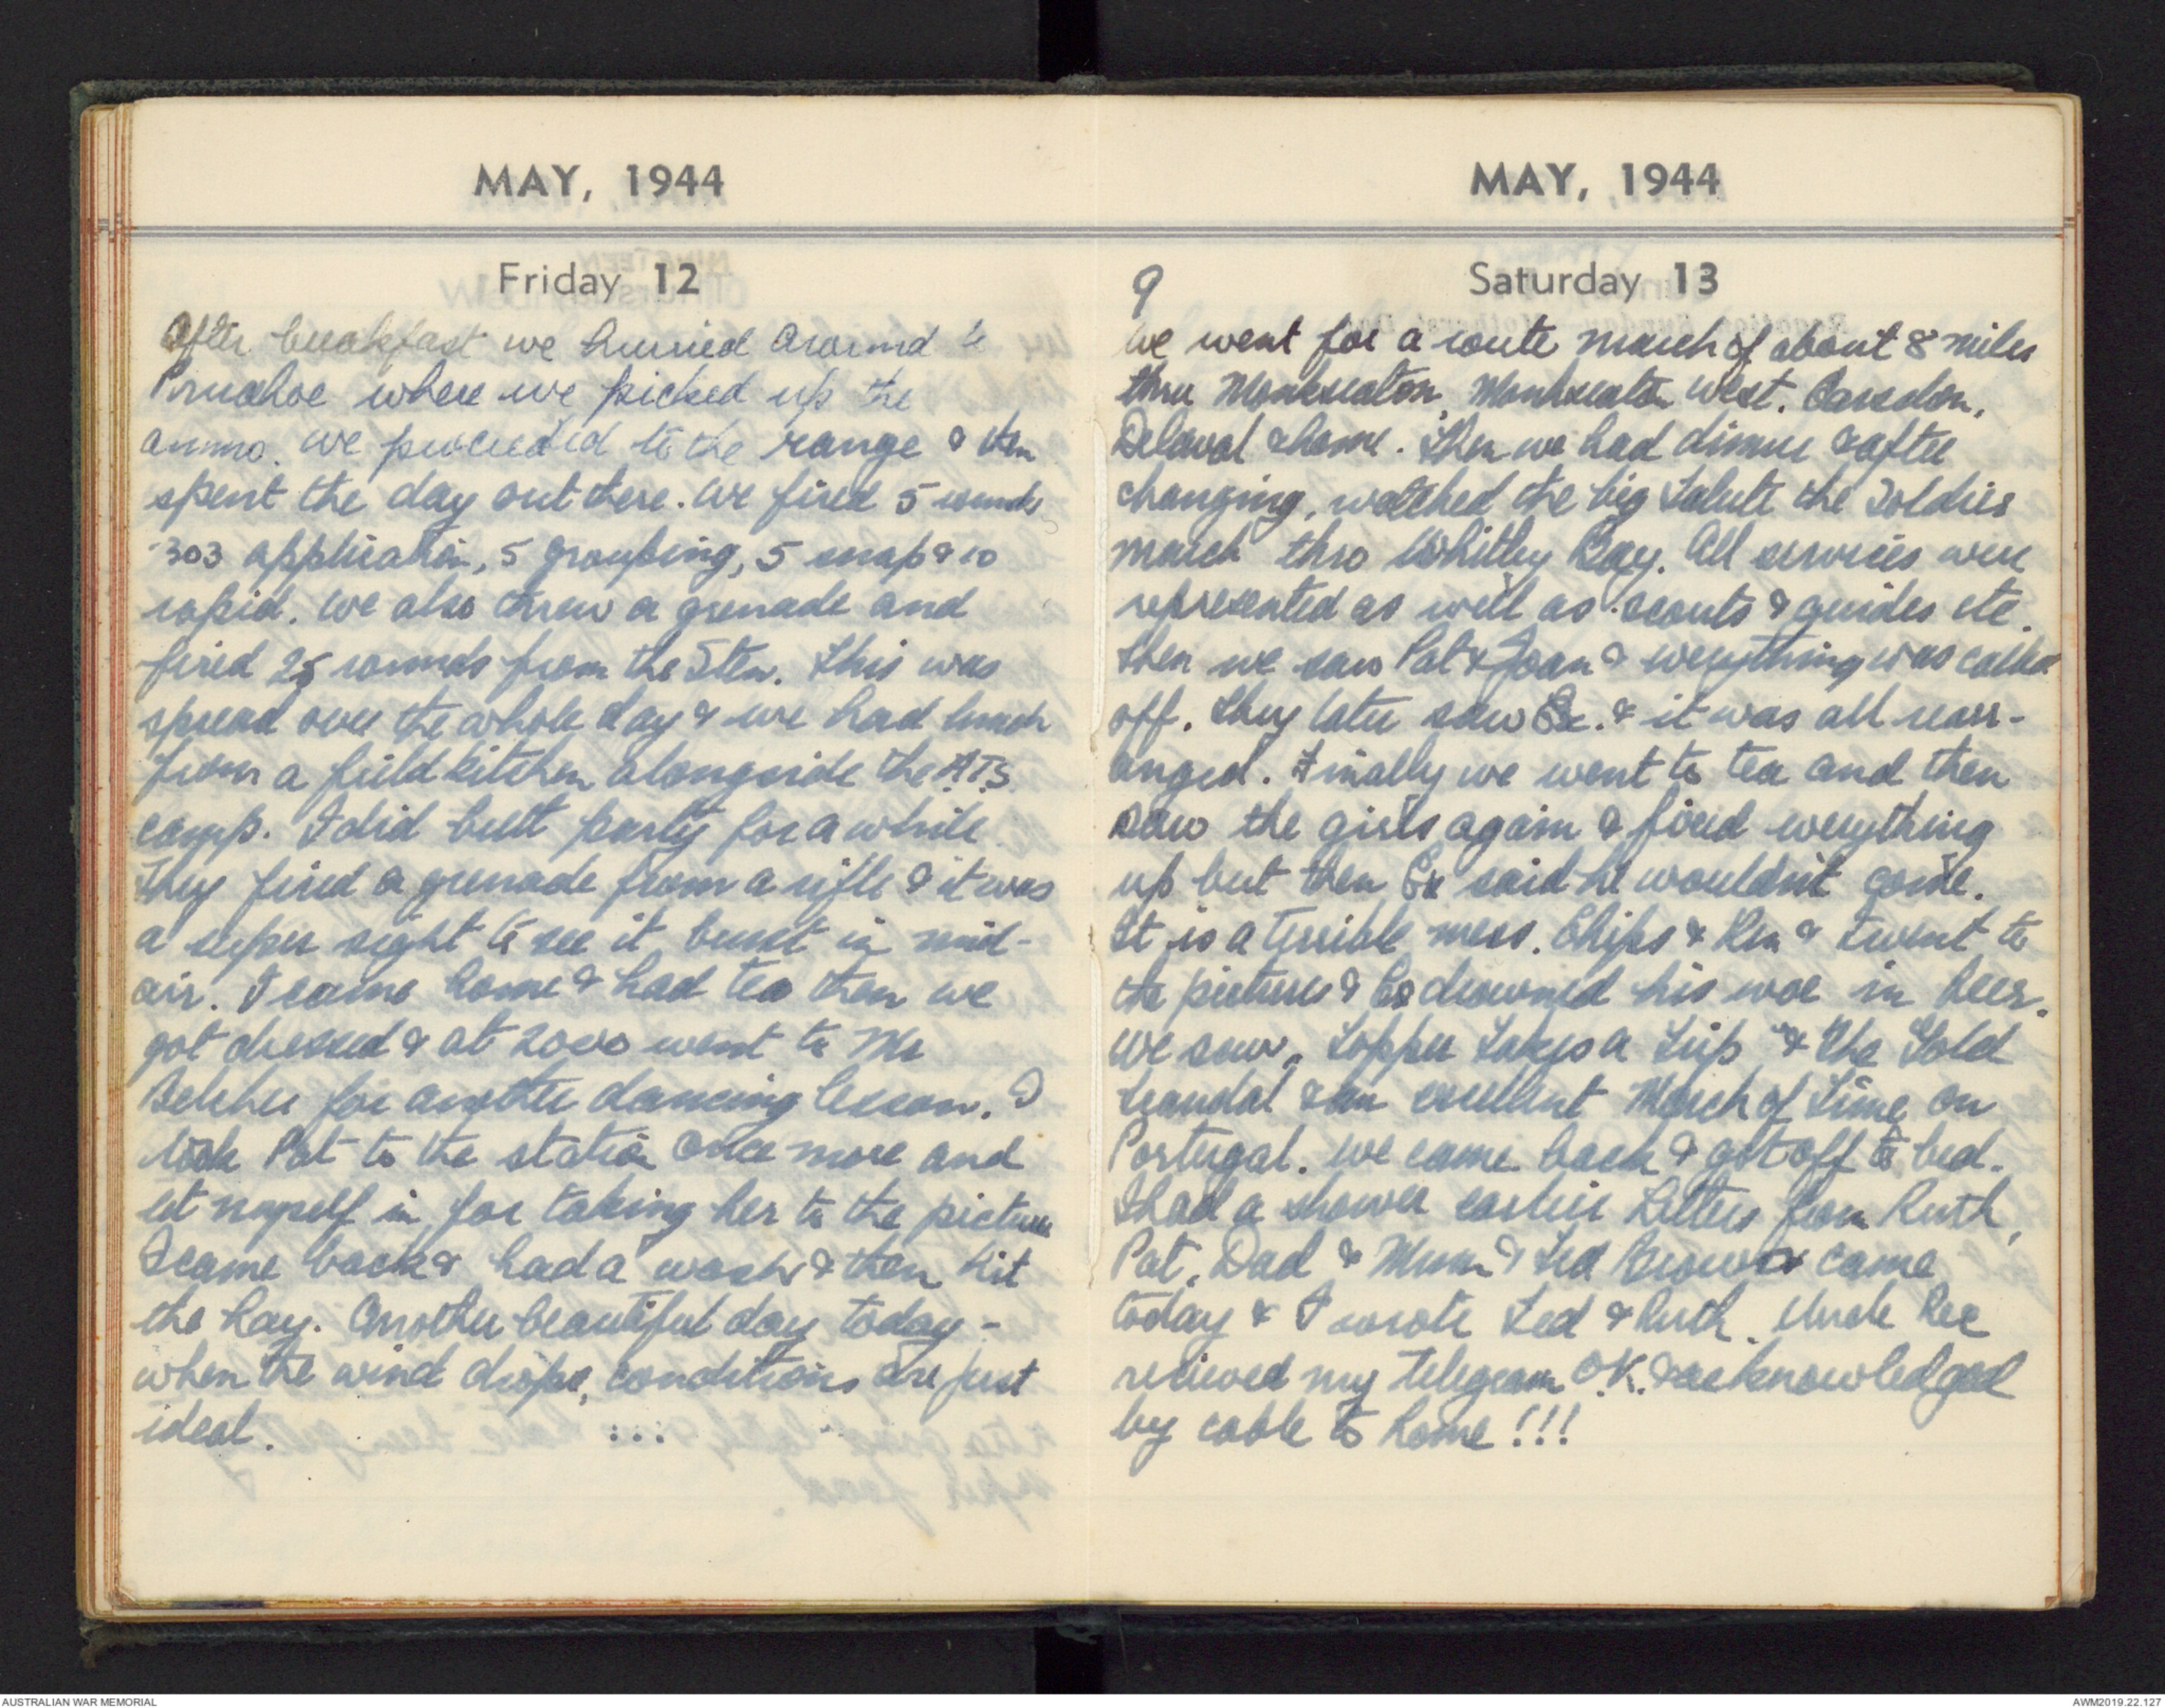 MAY, 1944
Friday 12
After breakfast we hurried around to
Prudhoe where we picked up the
ammo. We proceeded to the range & then
spent the day out there. We fired 5 rounds
.303 application, 5 grouping, 5 snap & 10
rapid. We also threw a grenade and
fired 25 rounds from the Sten. This was
spread over the whole day & we had lunch
from a field kitchen alongside the A.T.S.
camp. I did butt party for a while.
They fired a grenade from a rifle & it was
a super sight to see it burst in mid-
air. I came home & had tea then we
got dressed & at 2000 went to Mr
Belcher for another dancing lesson. I
took Pat to the station once more and
let myself in for taking her to the pictures
I came back & had a wash & then hit
the hay. Another beautiful day today -
when the wind drops, conditions are just
ideal.
MAY, 1944
Saturday 13
9
We went for a route march of about 8 miles
thru Monkseaton, Monkseaton West, Earsdon,
Delaval & home. Then we had dinner & after
changing, watched the big Salute the Soldier
march thro Whitley Bay. All services were
represented as well as scouts & guides etc.
Then we saw Pat & Joan & everything was called
off. They later saw Ex. & it was all rearr-
anged. Finally we went to tea and then
saw the girls again & fixed everything
up but then Ex said he wouldn't come.
It is a terrible mess. Chips & Ken & I went to
the pictures & Ex drowned his woe in beer.
We saw "Topper Takes a Trip" & The Gold
Scandal & an excellent March of Time on
Portugal. We came back & got off to bed.
I had a shower earlier Letters from Ruth,
Pat, Dad & Mum & Ted came
today & I wrote Ted & Ruth. Uncle Ree
recieved my telegram O.K. & acknowledged
by cable to home!!!
AUSTRALIAN WAR MEMORIAL
AWM2019.22.127